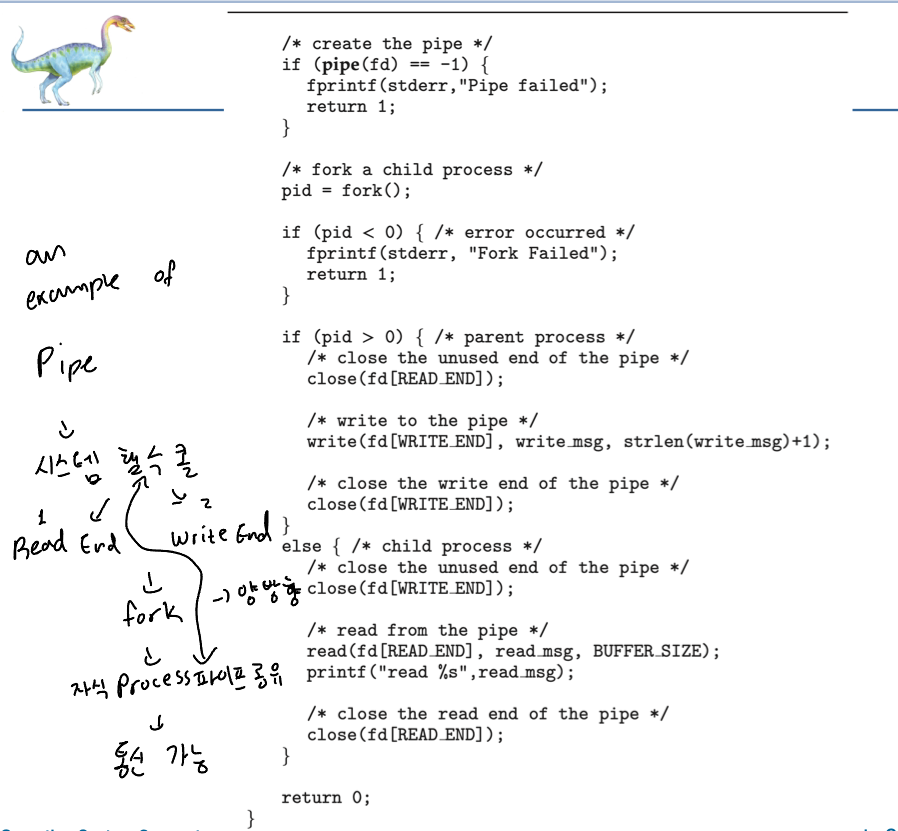 /* create the pipe */
if (pipe(fd) == -1) {
fprintf(stderr,"Pipe failed");
return 1;
}
/* fork a child process */
pid = fork();
if (pid < 0) { /* error occurred */
fprintf(stderr, "Fork Failed");
return 1;
}
if (pid > 0) { /* parent process */
/* close the unused end of the pipe */
close(fd[READ_END]);
/* write to the pipe */
write(fd[WRITE_END], write_msg, strlen(write_msg)+1);
/* close the write end of the pipe */
close(fd[WRITE_END]);
}
else { /* child process */
/* close the unused end of the pipe */
close(fd[WRITE_END]);
/* read from the pipe */
read(fd[READ_END], read_msg, BUFFER_SIZE);
printf("read %s",read_msg);
/* close the read end of the pipe */
close(fd[READ_END]);
}
return 0;
}
an
example of
Pipe
시스템 콜
1 2
Read End write End
fork
→ 양방향
자식 process 파이프 공유
통신 가능